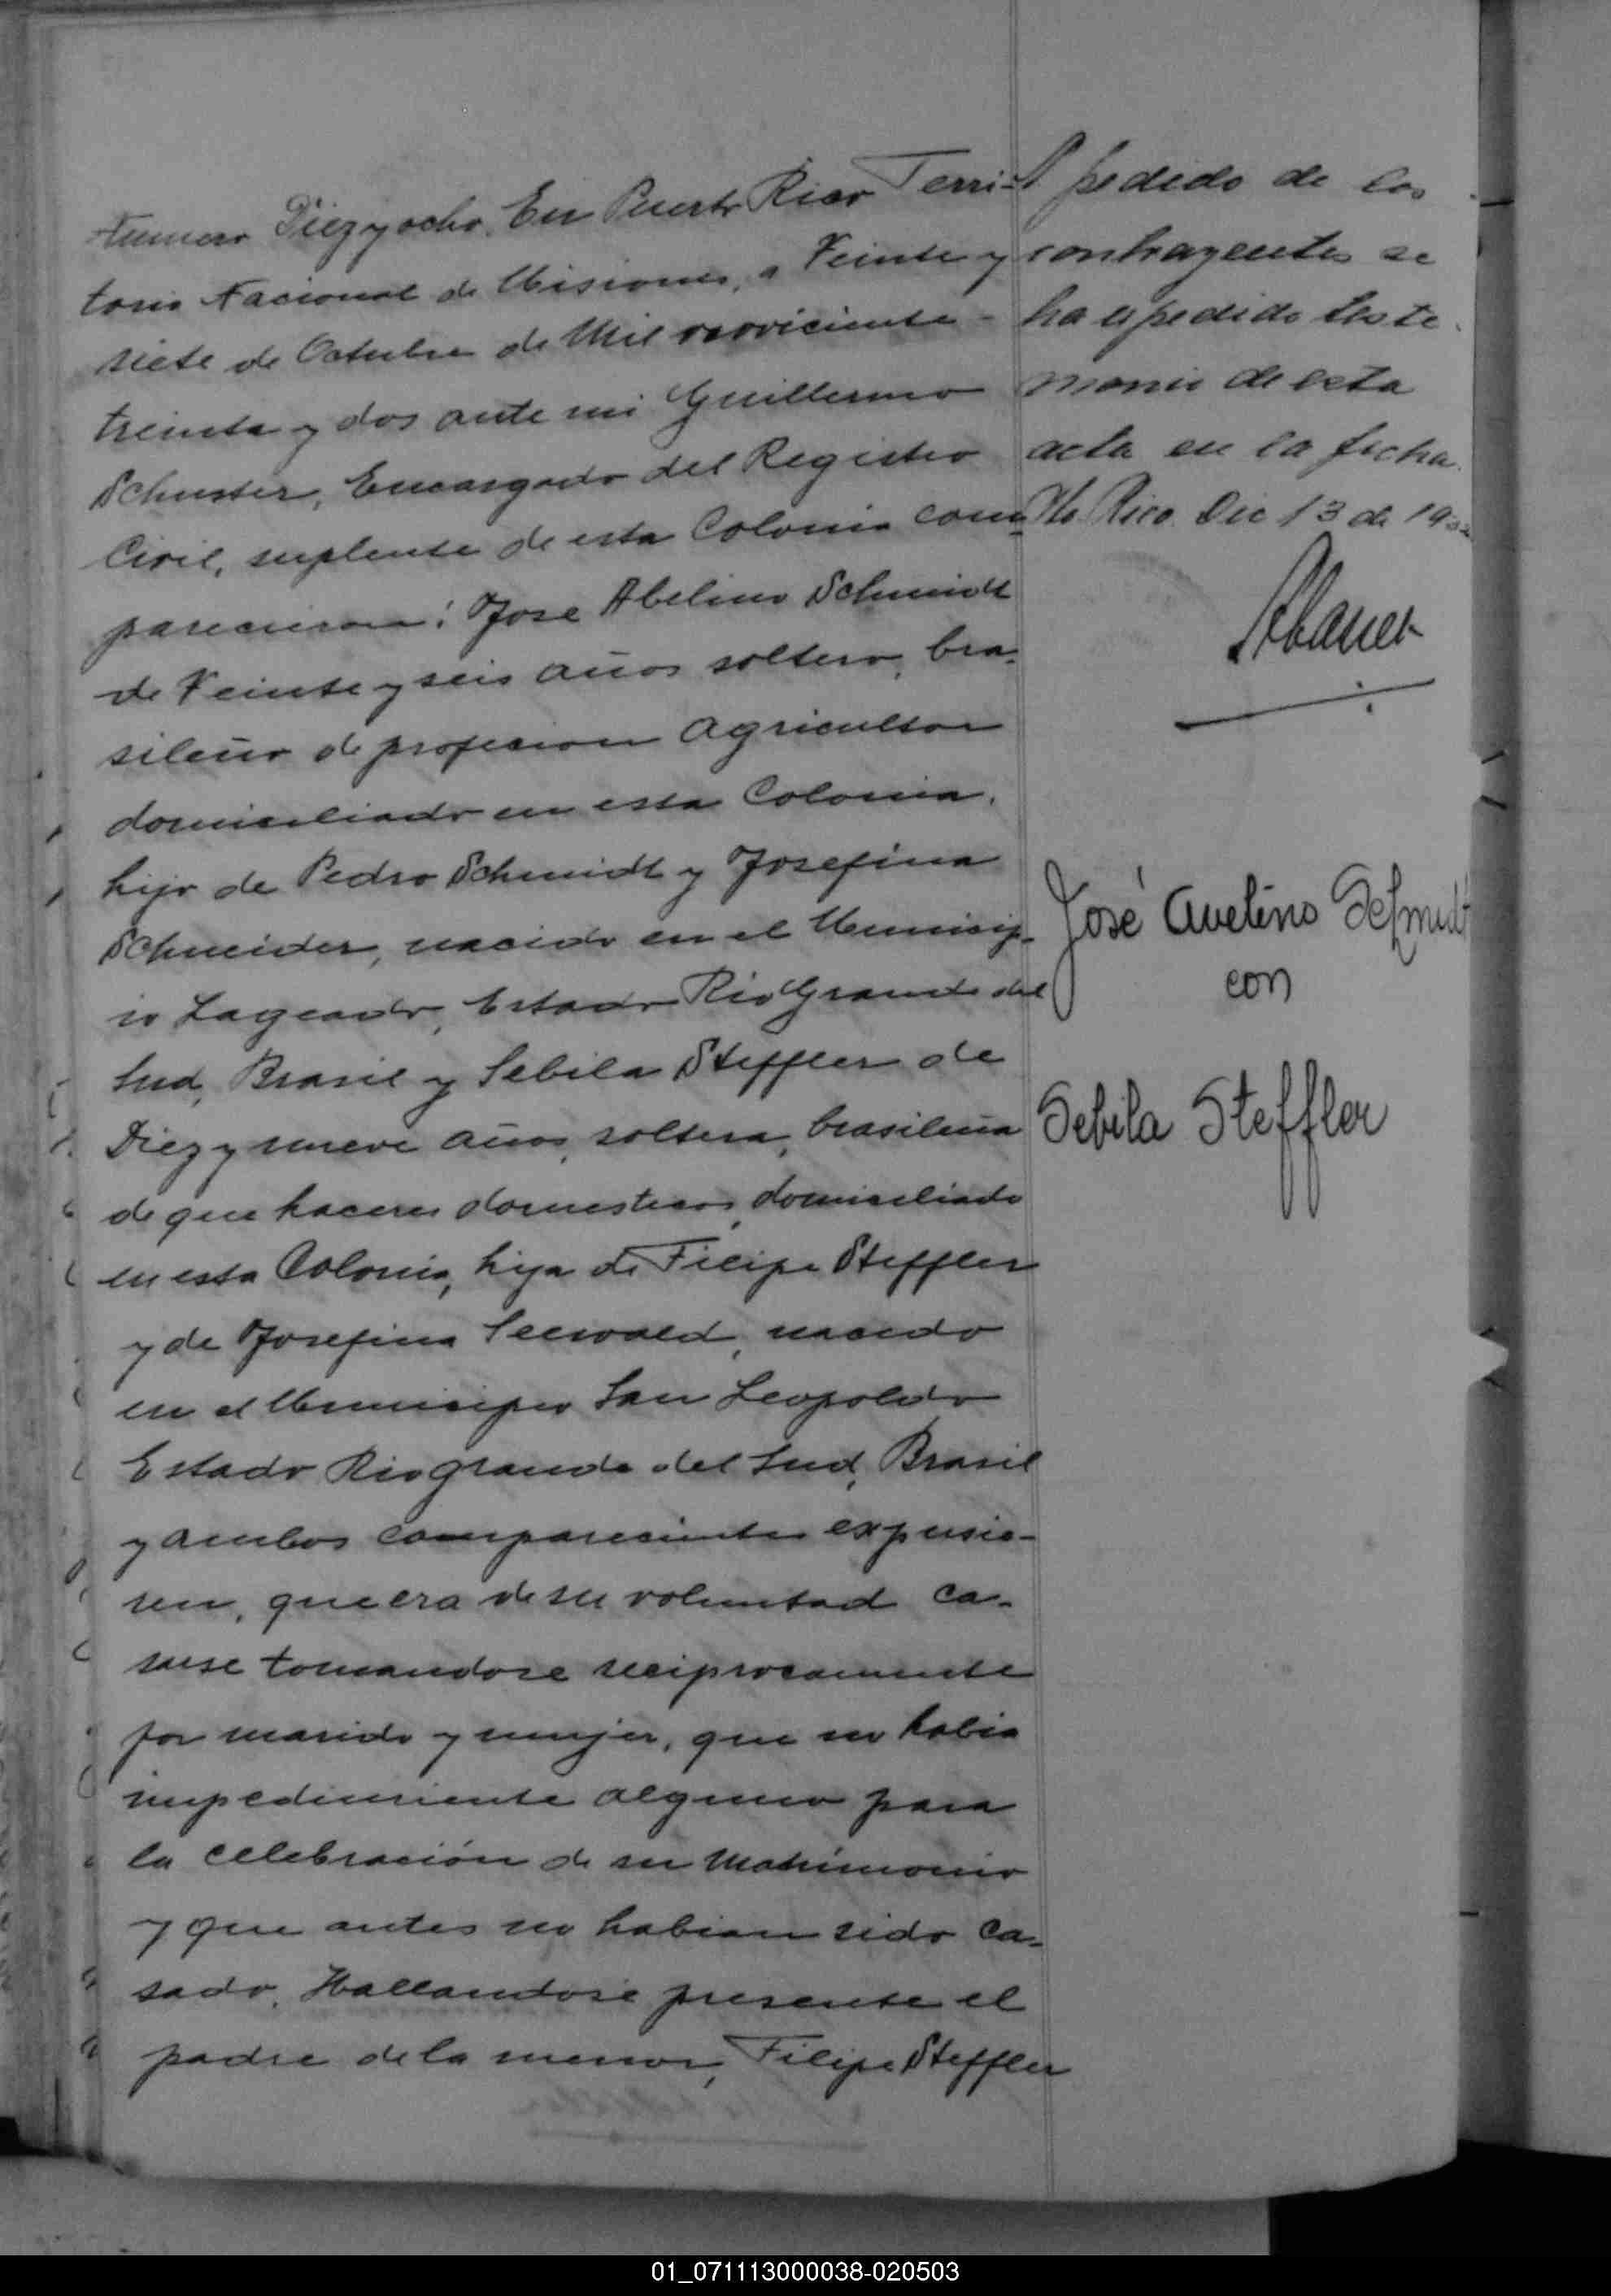 Numero Diez y ocho. En Puerto Rico Terri-
torio Nacional de Misiones, a Veinte y
siete de Octubre de Mil noviciento -
treinta y dos ante mi Guillermo
Schuster, Encargado del Registro
Civil, suplente de esta Colonia com-
parecieron: Jose Abelino Schmidt
de Veinte y seis años soltero, bra-
sileño de profecion Agricultor
domiciliado en esta Colonia,
hijo de Pedro Schmidt y Josefina
Schneider, nacido en el Munisip-
io Lageado, Estado Rio Grande del
Sud, Brasil y Sebila Steffler de
Diez y nueve años, soltera, brasileña
de que haceres domesticos, domiciliado
en esta Colonia, hija de Filipe Steffler
y de Josefina Seewald, nacido
en el Munisipio San Leopoldo
Estado Rio grande del Sud, Brasil
y ambos comparecientes expusie-
ren, que era de su voluntad ca-
sarse tomandose reciprocamente
por marido y mujer, que no habia
impedimiento alguno para
la celebración de su Matrimonio
y que antes no habian sido ca-
sado. Hallandose presente el
padre de la menor, Filipe Steffler
A pedido de los
contrayentes se
ha expedido teste
monio de esta
acta en la fecha.
Pto. Rico. Dic 13 de
José Avelino Schmidt
con
Sebila Steffler
01_071113000038-020503